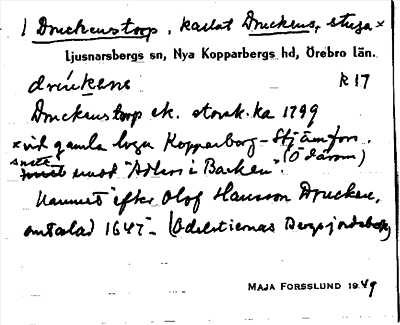 1 Druckenstorp, kallat Druckens, stuga x
Ljusnarsbergs sn, Nya Kopparbergs hd, Örebro län.
drúkens R 17
Druckenstorp ek. storsk. ka 1799
x vid gamla vägen Kopparberg – Stjärnfors.
snett emot "Adlers i Backen". (Ö därom)
Namnet efter Olof Hansson Drucken,
omtalad 1647 – (Odelstiernas Bergsjordebok)
MAJA FORSSLUND 1949